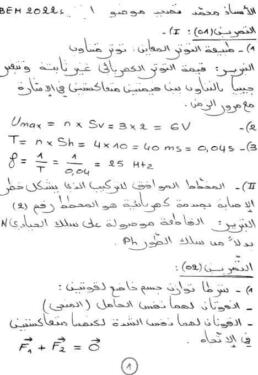 الأستاذ محمد نصيب موضوع 1 BEM 2022
التمرين (01): I-
1- طبيعة التوتر المعاين: توتر متناوب
التبرير: قيمة التوتر الكهربائي غير ثابتة وتتغير
جيبيا بالتناوب بين قيمتين متعاكستين في الإشارة
مع مرور الزمن.
2- Umax = n × Sv = 3 × 2 = 6V
3- T = n × Sh = 4 × 10 = 40 ms = 0,04s
f = 1/T = 1/0,04 = 25 Hz
II)- المخطط الموافق للتركيب الذي يشكل خطر
الإصابة بصدمة كهربائية هو المخطط رقم (2)
التبرير: القاطعة موصولة على سلك الحيادي N
بدلا من سلك الطور Ph.
التمرين (02):
1- شرطا توازن جسم خاضع لقوتين:
- القوتان لهما نفس الحامل (المنحى)
- القوتان لهما نفس الشدة لكنهما متعاكستين
في الاتجاه.
F₁ + F₂ = 0
1